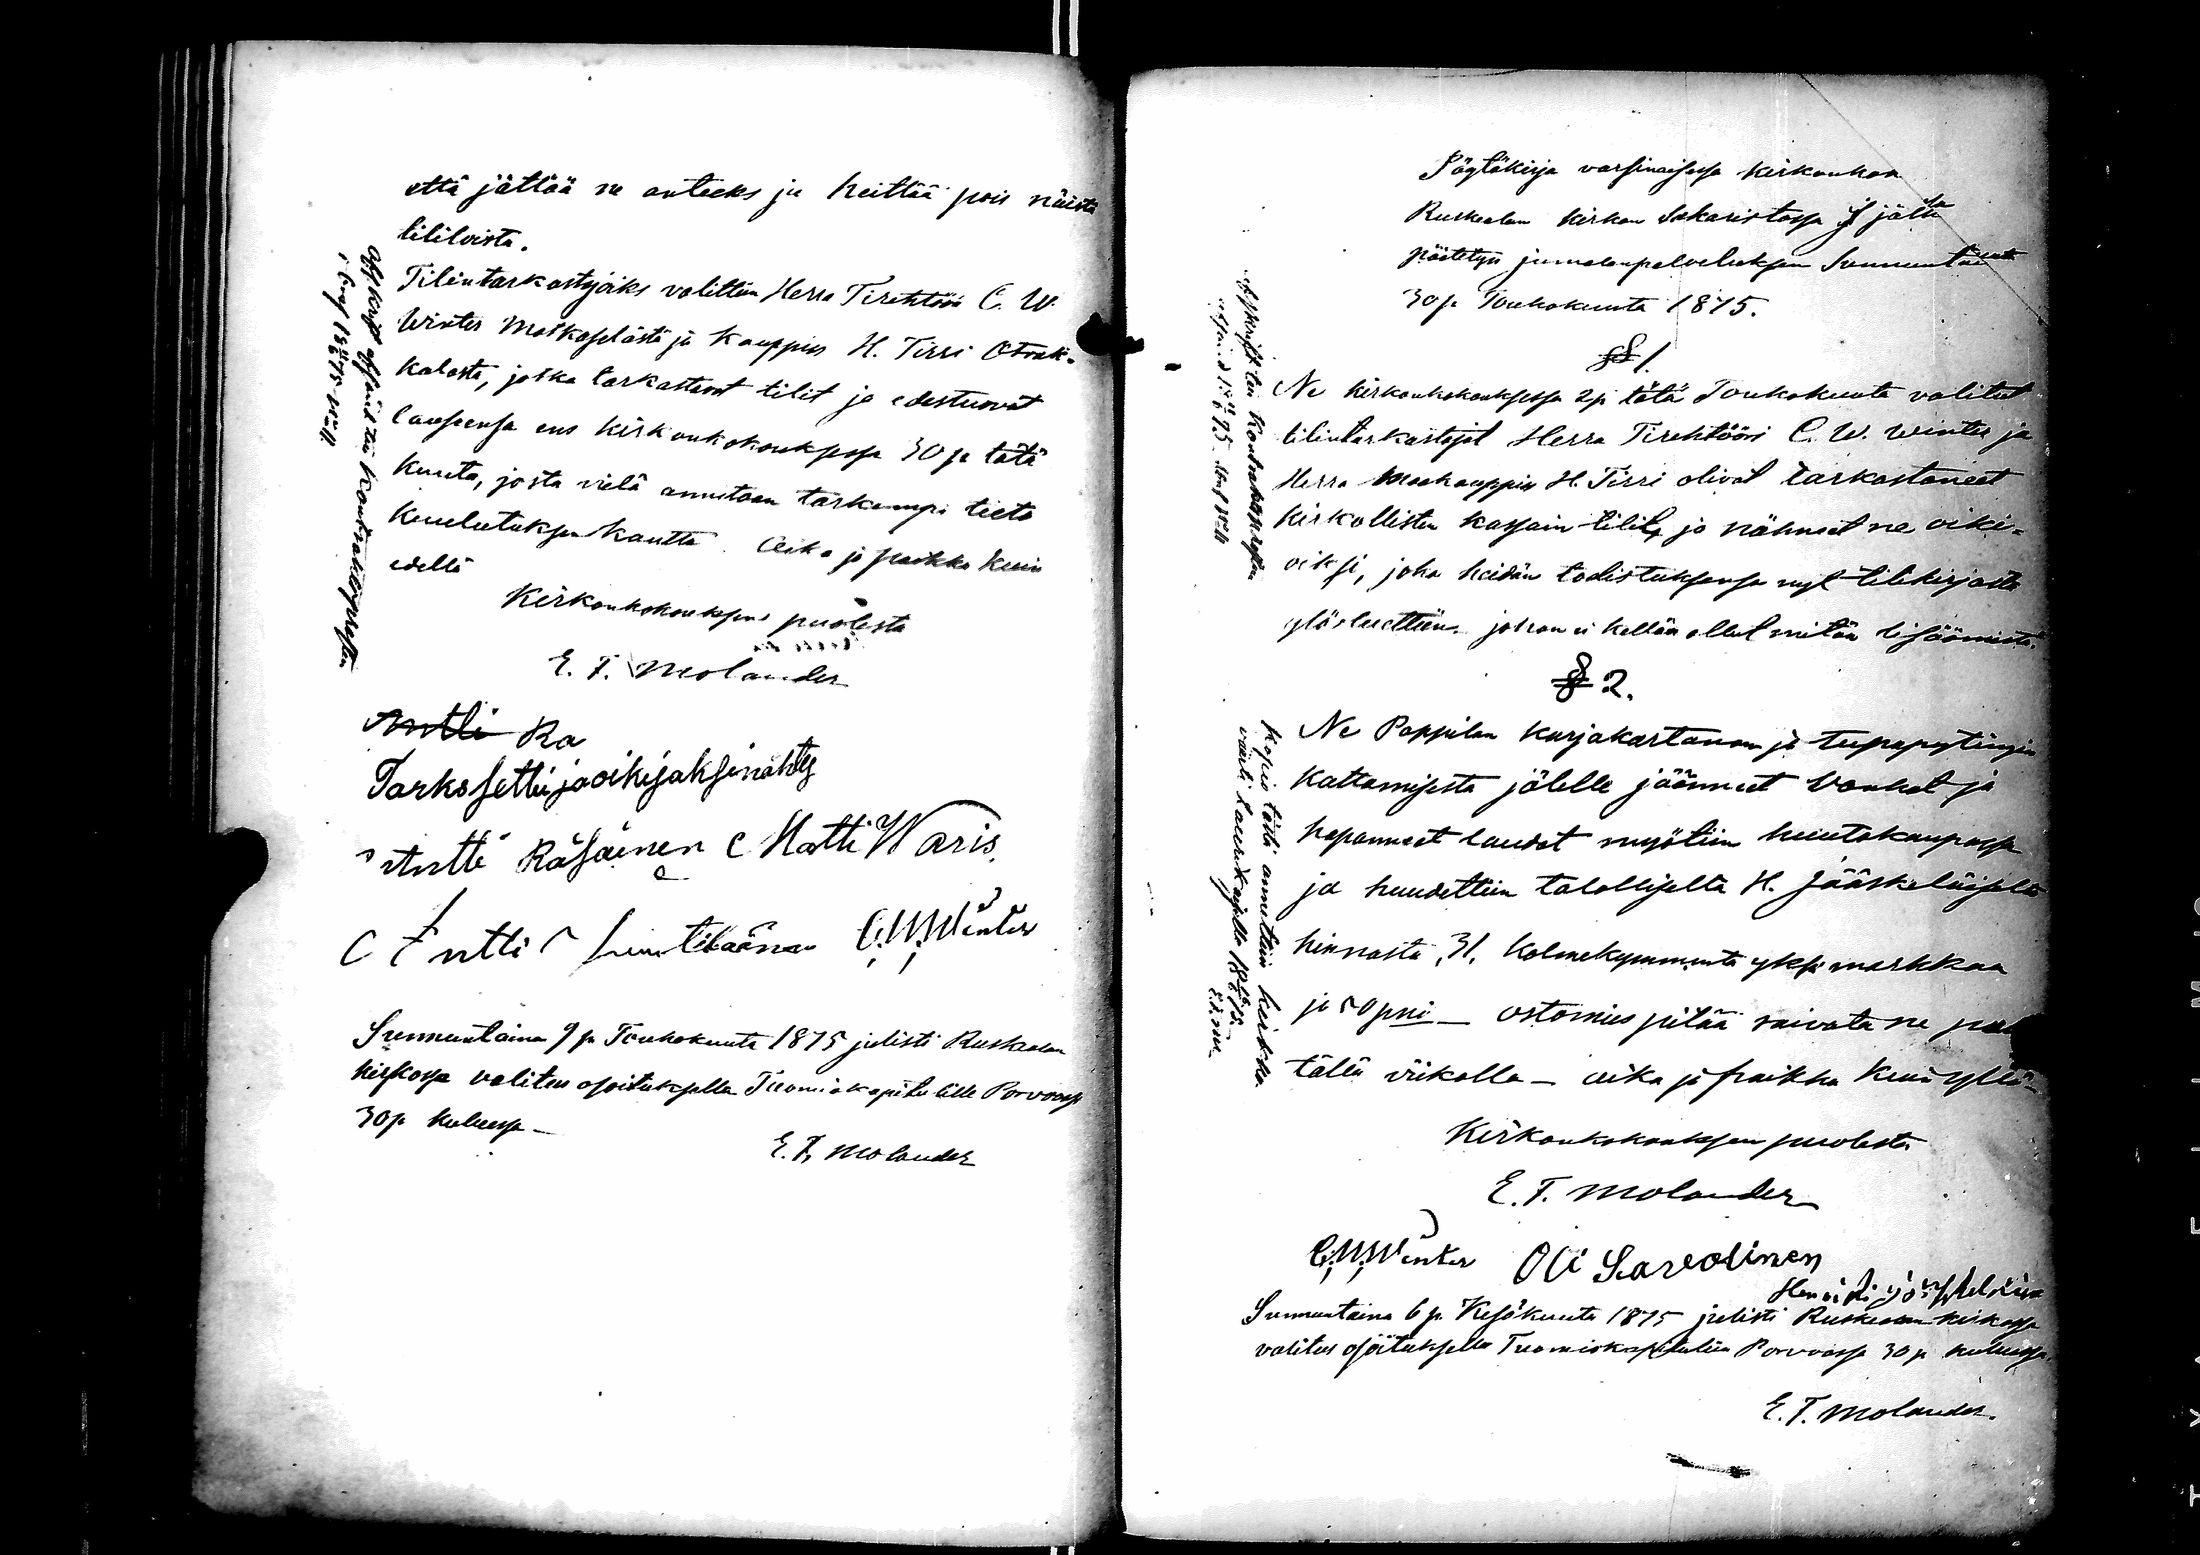 että jättää ne anteeks ja heittää pois näistä
tililoista.
Tilintarkastajaiks valittiin Herra Tirehtööri C. W.
Winter Matkaselästä ja Kauppias H. Tirri Otrak-
kalasta, jotka tarkastavat tilit ja edestuovat
lausensa ens kirkonkokouksessa 30 p tätä
kuuta, josta vielä annetaan tarkempi tieto
kuulutuksen kautta. Aika ja paikka kuin
edellä
Kirkonkokouksen puolesta
E. F. Molander
Antti Ra
Tarkasettu ja oikijaksi nähty
Antti Räsäinen Matti Waris
Antti C. W. Winter
Sunnuntaina 9 p. Toukokuuta 1875 julisti Ruskealan
kirkossa valitus osoituksella Tuomiokapitulille Porvoossa
30 p. kuluessa –
E. F. Molander
Afskrift till Kontraktsprosten
Pöytäkirja varsinaisessa kirkonkok
Ruskealan kirkon Sakaristossa jälk
päätetyn jumalanpalveluksen Sunnuntaina
30 p. Toukokuuta 1875.
§ 1.
Ne kirkonkokouksessa 2 p. tätä Toukokuuta valitut
tilintarkastajat Herra Tirehtööri C. W. Winter ja
Herra Maakauppias H. Tirri olivat tarkastaneet
kirkollisten kassain tilit, ja nähneet ne oiki-
oiksi, joka heidän todistuksensa nyt tilikirjasta
ylösluettiin, johon ei kellän ollut mitän lisäämistä.
§ 2.
Ne Pappilan karjakartanon ja tupapytingin
kattamisesta jälelle jäänneet vanhat ja
hapanneet laudat myötiin huutokaupassa
ja huudettiin talolliselta H. Jääskeläiseltä
hinnasta 31, kolmekymmentä yksi markkaa
ja 50 pni – ostomies pitää raivata ne pois
tällä viikolla – aika ja paikka kuin yllä
Kirkonkokouksen puolesta
E. F. Molander
C. W. Winter Oli Savolinen
Sunnuntaina 6 p. Kesäkuuta 1875 julisti Ruskealan kirkossa
valitus osoituksella Tuomiokapituliin Porvoossa 30 p. kuluessa.
E. F. Molander.
Afskrift till Kontraktsprosten
Kopio tästä annettiin kirkko